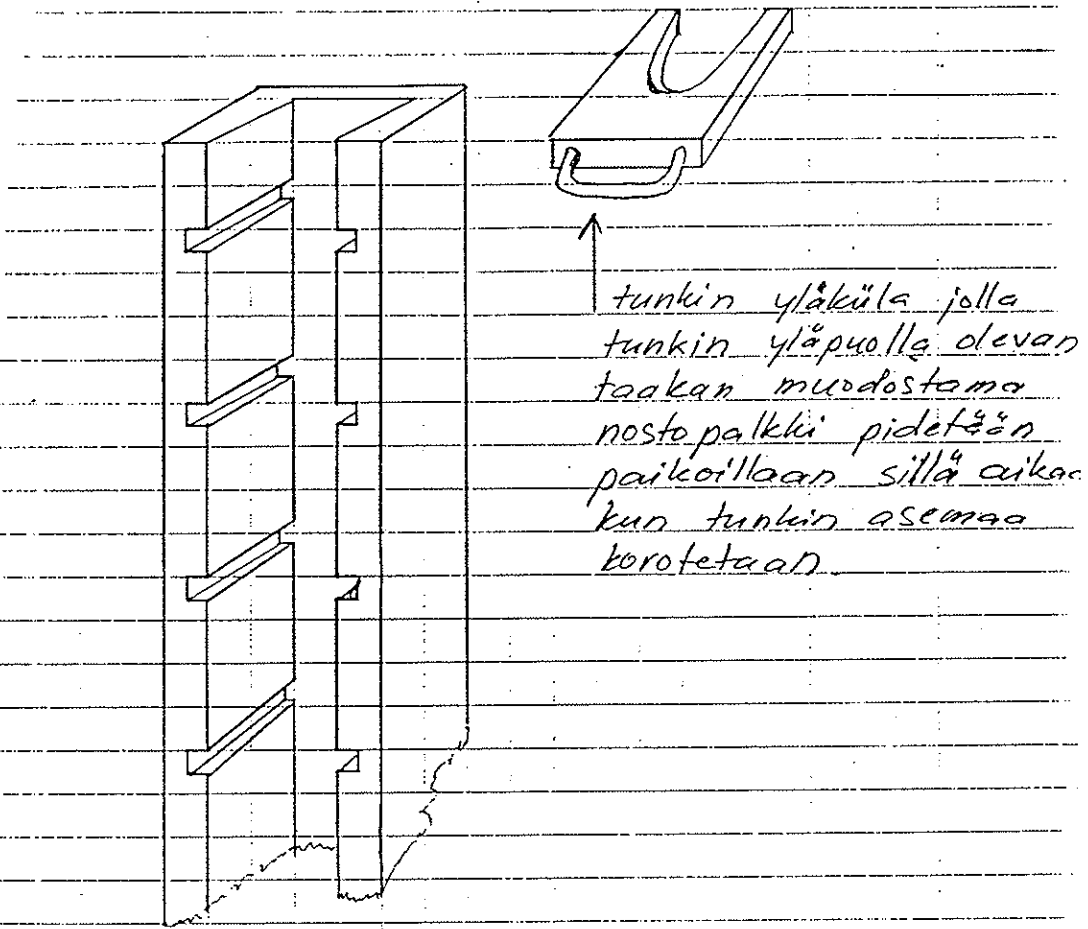 tunkin yläküla jolla
tunkin yläpuolla olevan
taakan muodostama
nostopalkki pidetään
paikoillaan sillä aikaa
kun tunkin asemaa
korotetaan